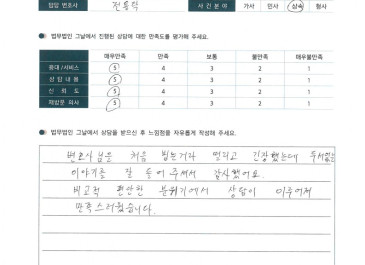 담당 변호사 전용탁 사건분야 가사 민사 상속 형사
● 법무법인 그날에서 진행된 상담에 대한 만족도를 평가해 주세요.
매우만족 만족 보통 불만족 매우불만족
응대/서비스 5 4 3 2 1
상담내용 5 4 3 2 1
신뢰도 5 4 3 2 1
재방문 의사 5 4 3 2 1
● 법무법인 그날에서 상담을 받으신 후 느낌점을 자유롭게 작성해 주세요.
변호사님은 처음 뵙는거라 떨리고 긴장했는데 두서없는
이야기를 잘 들어 주셔서 감사했어요.
비교적 편안한 분위기에서 상담이 이루어져
만족스러웠습니다.